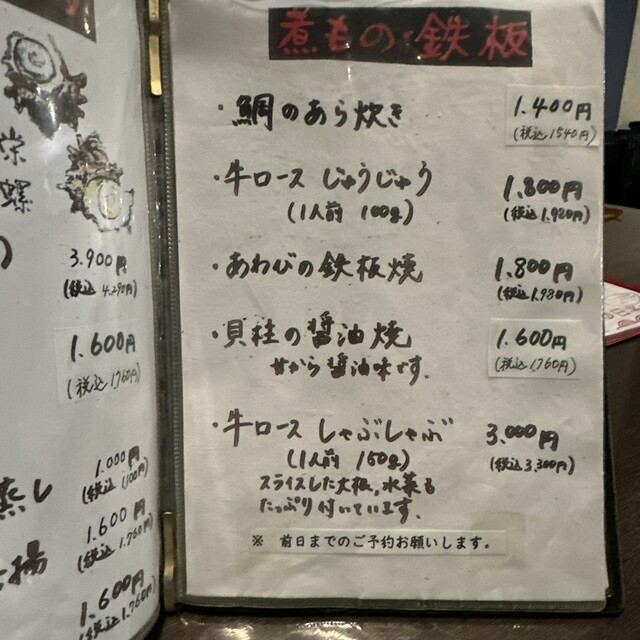 栄
螺
)
3.900円
(税込 4.290円)
1.600円
(税込 1760円)
1.000円
(税込 1100円)
蒸し
1.600円
(税込 1.760円)
揚
1.600円
(税込 1.760円)
煮もの・鉄板
・鯛のあら炊き
1.400円
(税込 1540円)
・牛ロース じゅうじゅう
1.800円
(1人前 100g)
(税込 1.980円)
・あわびの鉄板焼
1.800円
(税込 1.980円)
・貝柱の醤油焼
1.600円
甘から醤油味です.
(税込 1760円)
・牛ロース しゃぶしゃぶ
3.000円
(1人前 150g)
(税込 3.300円)
スライスした大根,水菜も
たっぷり付いています.
※ 前日までのご予約お願いします。